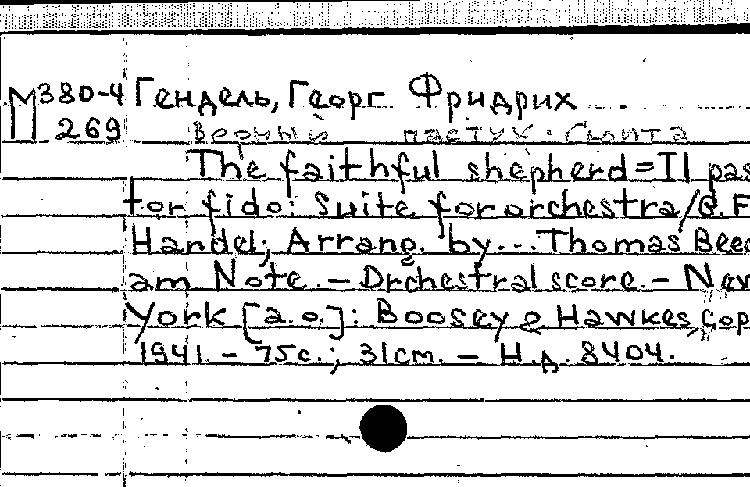 М 380-4 Гендель, Георг Фридрих
269 Верный пастух. Сюита
The faithful shepherd = Il pas
tor fido: Suite for orchestra/G.F.
Handel; Arrang. by... Thomas Beec
am Note. - Orchestral score. - New
York [a.o.]: Boosey & Hawkes, cop
1941. - 75с.; 31cm. - Н.д. 8404.